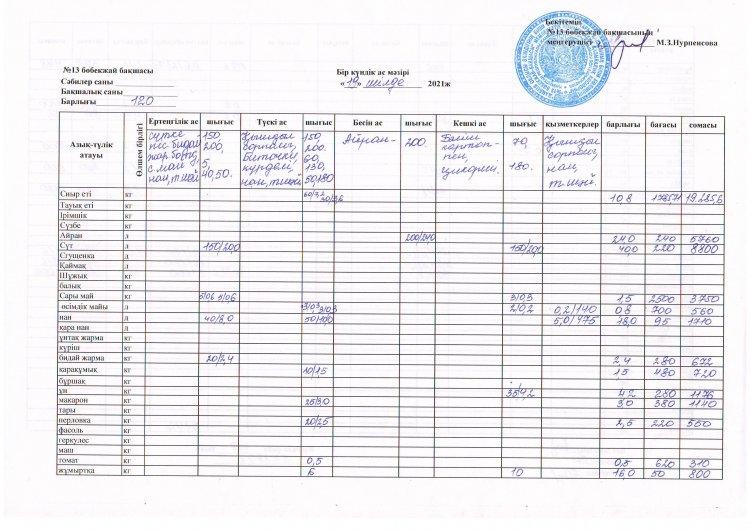 Бекітемін
№13 бөбекжай бақшасының
меңгерушісі М.З.Нурпенсова
№13 бөбекжай бақшасы
Сәбилер саны
Бақшалық саны
Барлығы 120
Бір күндік ас мәзірі
«19» шілде 2021ж
Азық-түлік атауы Өлшем бірлігі Ертеңгілік ас шығыс Түскі ас шығыс Бесін ас шығыс Кешкі ас шығыс қызметкерлер барлығы бағасы сомасы
150 150, Айран- 200. 70,
200, 200,
5, 60, сорпасы,
40,50. 130, 180. нан,
нан, тшай 50,180 тшай.
Сиыр еті кг 10,8 19.285,6
Тауық еті кг
Ірімшік кг
Сүзбе кг
Айран л 200/24,0 24,0 240 5760
Сүт л 150/20,0 150/20,0 40,0 220 8800
Сгущенка кг
Қаймақ кг
Шұжық кг
балық кг
Сары май кг 5/0,6 5/0,6 3/0,3 1,5 2500 3750
өсімдік майы л 3/0,3 3/0,3 2/0,2 0,2/140 0,8 700 560
нан л 40/8,0 50/10,0 5,0/475 18,0 95 1710
қара нан л
ұнтақ жарма кг
күріш кг
бидай жарма кг 20/2,4 2,4 280 672
қарақұмық кг 10/1,5 1,5 480 720
бұршақ кг
ұн кг 35/4,2 4,2 280 1176
макарон кг 25/3,0 3,0 380 1140
тары кг
перловка кг 20/2,5 2,5 220 550
фасоль кг
геркулес кг
маш кг
томат кг 0,5 0,5 620 310
жұмыртқа кг 6 10 16,0 50 800